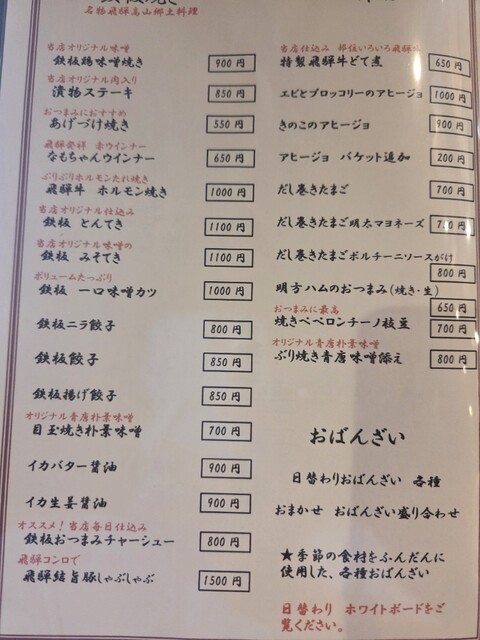 名物飛騨高山郷土料理
当店オリジナル味噌
鉄板鶏味噌焼き 900円
当店オリジナル肉入り
漬物ステーキ 850円
おつまみにおすすめ
あげづけ焼き 550円
飛騨発祥 赤ウインナー
なもちゃんウインナー 650円
ぷりぷりホルモンたれ焼き
飛騨牛 ホルモン焼き 1000円
当店オリジナル仕込み
鉄板 とんてき 1100円
当店オリジナル味噌の
鉄板 みそてき 1100円
ボリュームたっぷり
鉄板 一口味噌カツ 1000円
鉄板ニラ餃子 800円
鉄板餃子 850円
鉄板揚げ餃子 850円
オリジナル青唐朴葉味噌
目玉焼き朴葉味噌 700円
イカバター醤油 900円
イカ生姜醤油 900円
オススメ！当店毎日仕込み
鉄板おつまみチャーシュー 800円
飛騨コンロで
飛騨結旨豚しゃぶしゃぶ 1500円
当店仕込み 部位いろいろ飛騨
特製飛騨牛どて煮 650円
エビとブロッコリーのアヒージョ 1000円
きのこのアヒージョ 900円
アヒージョ バケット追加 200円
だし巻きたまご 700円
だし巻きたまご明太マヨネーズ 円
だし巻きたまごポルチーニソースがけ
800円
明方ハムのおつまみ(焼き・生)
650円
おつまみに最高
焼きペペロンチーノ枝豆 700円
オリジナル青唐朴葉味噌
ぶり焼き青唐味噌添え 800円
おばんざい
日替わりおばんざい 各種
おまかせ おばんざい盛り合わせ
★季節の食材をふんだんに
使用した、各種おばんざい
日替わり ホワイトボードをご
覧ください。